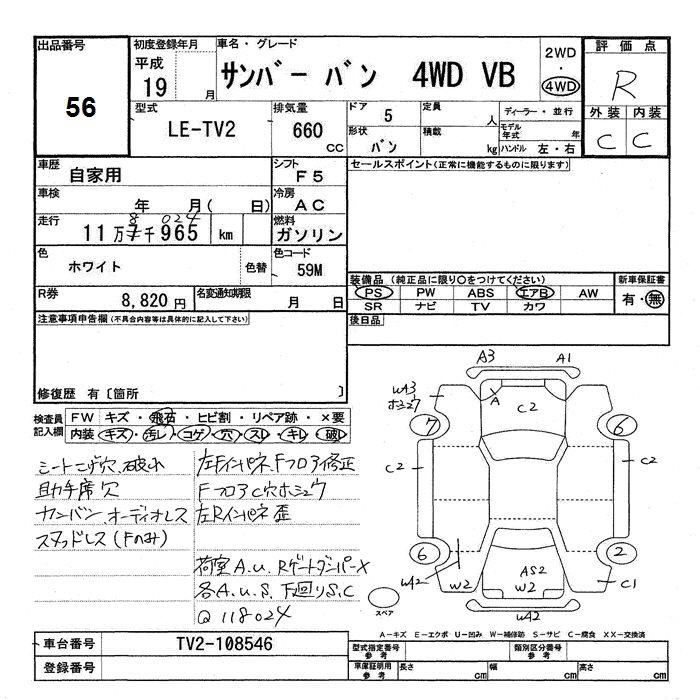 出品番号
56
初度登録年月
平成
19 月
車名・グレード
サンバー バン 4WD VB
2WD
・
4WD
評価点
R
外装 内装
C C
型式
LE-TV2
排気量
660 cc
ドア
5
定員
人
形状
バン
積載
kg
ディーラー・並行
モデル年式 年
ハンドル 左・右
車歴
自家用
シフト
F5
セールスポイント(正常に機能するものに限ります)
車検
年 月( 日)
冷房
AC
走行
8 024
11万7千965 km
燃料
ガソリン
色
ホワイト 色替
色コード
59M
R券
8,820円
名変通知期限
月 日
装備品(純正品に限り○をつけてください)
PS PW ABS エアB AW
SR ナビ TV カワ
新車保証書
有・無
後日品
注意事項申告欄(不具合内容等は具体的に記入して下さい)
修復歴 有〔箇所 〕
検査員記入欄
FW キズ・飛石・ヒビ割・リペア跡・×要
内装 キズ・汚レ・コゲ・穴・スレ・キレ・破レ
シートコゲ穴、破れ
助手席穴
ナンバン オーディオレス
スタッドレス(Fのみ)
左Fインパネ、Fフロア修正
FフロアC穴ホシュウ
左Rインパネ歪
荷室A.U. RゲートダンパーX
各A.U.S. 下回りS.C
Q 118024
A3 A1
WA3
ホシュウ
A
C2
7 6
C2 C2
6 2
WA2 W2
AS2
W2
C1
WA2
スペア
A−キズ E−エクボ U−凹み W−補修跡 S−サビ C−腐食 XX−交換済
車台番号
TV2-108546
登録番号
型式指定番号
参考
類別区分番号
参考
車庫証明用
参考
長さ cm
幅 cm
高さ cm